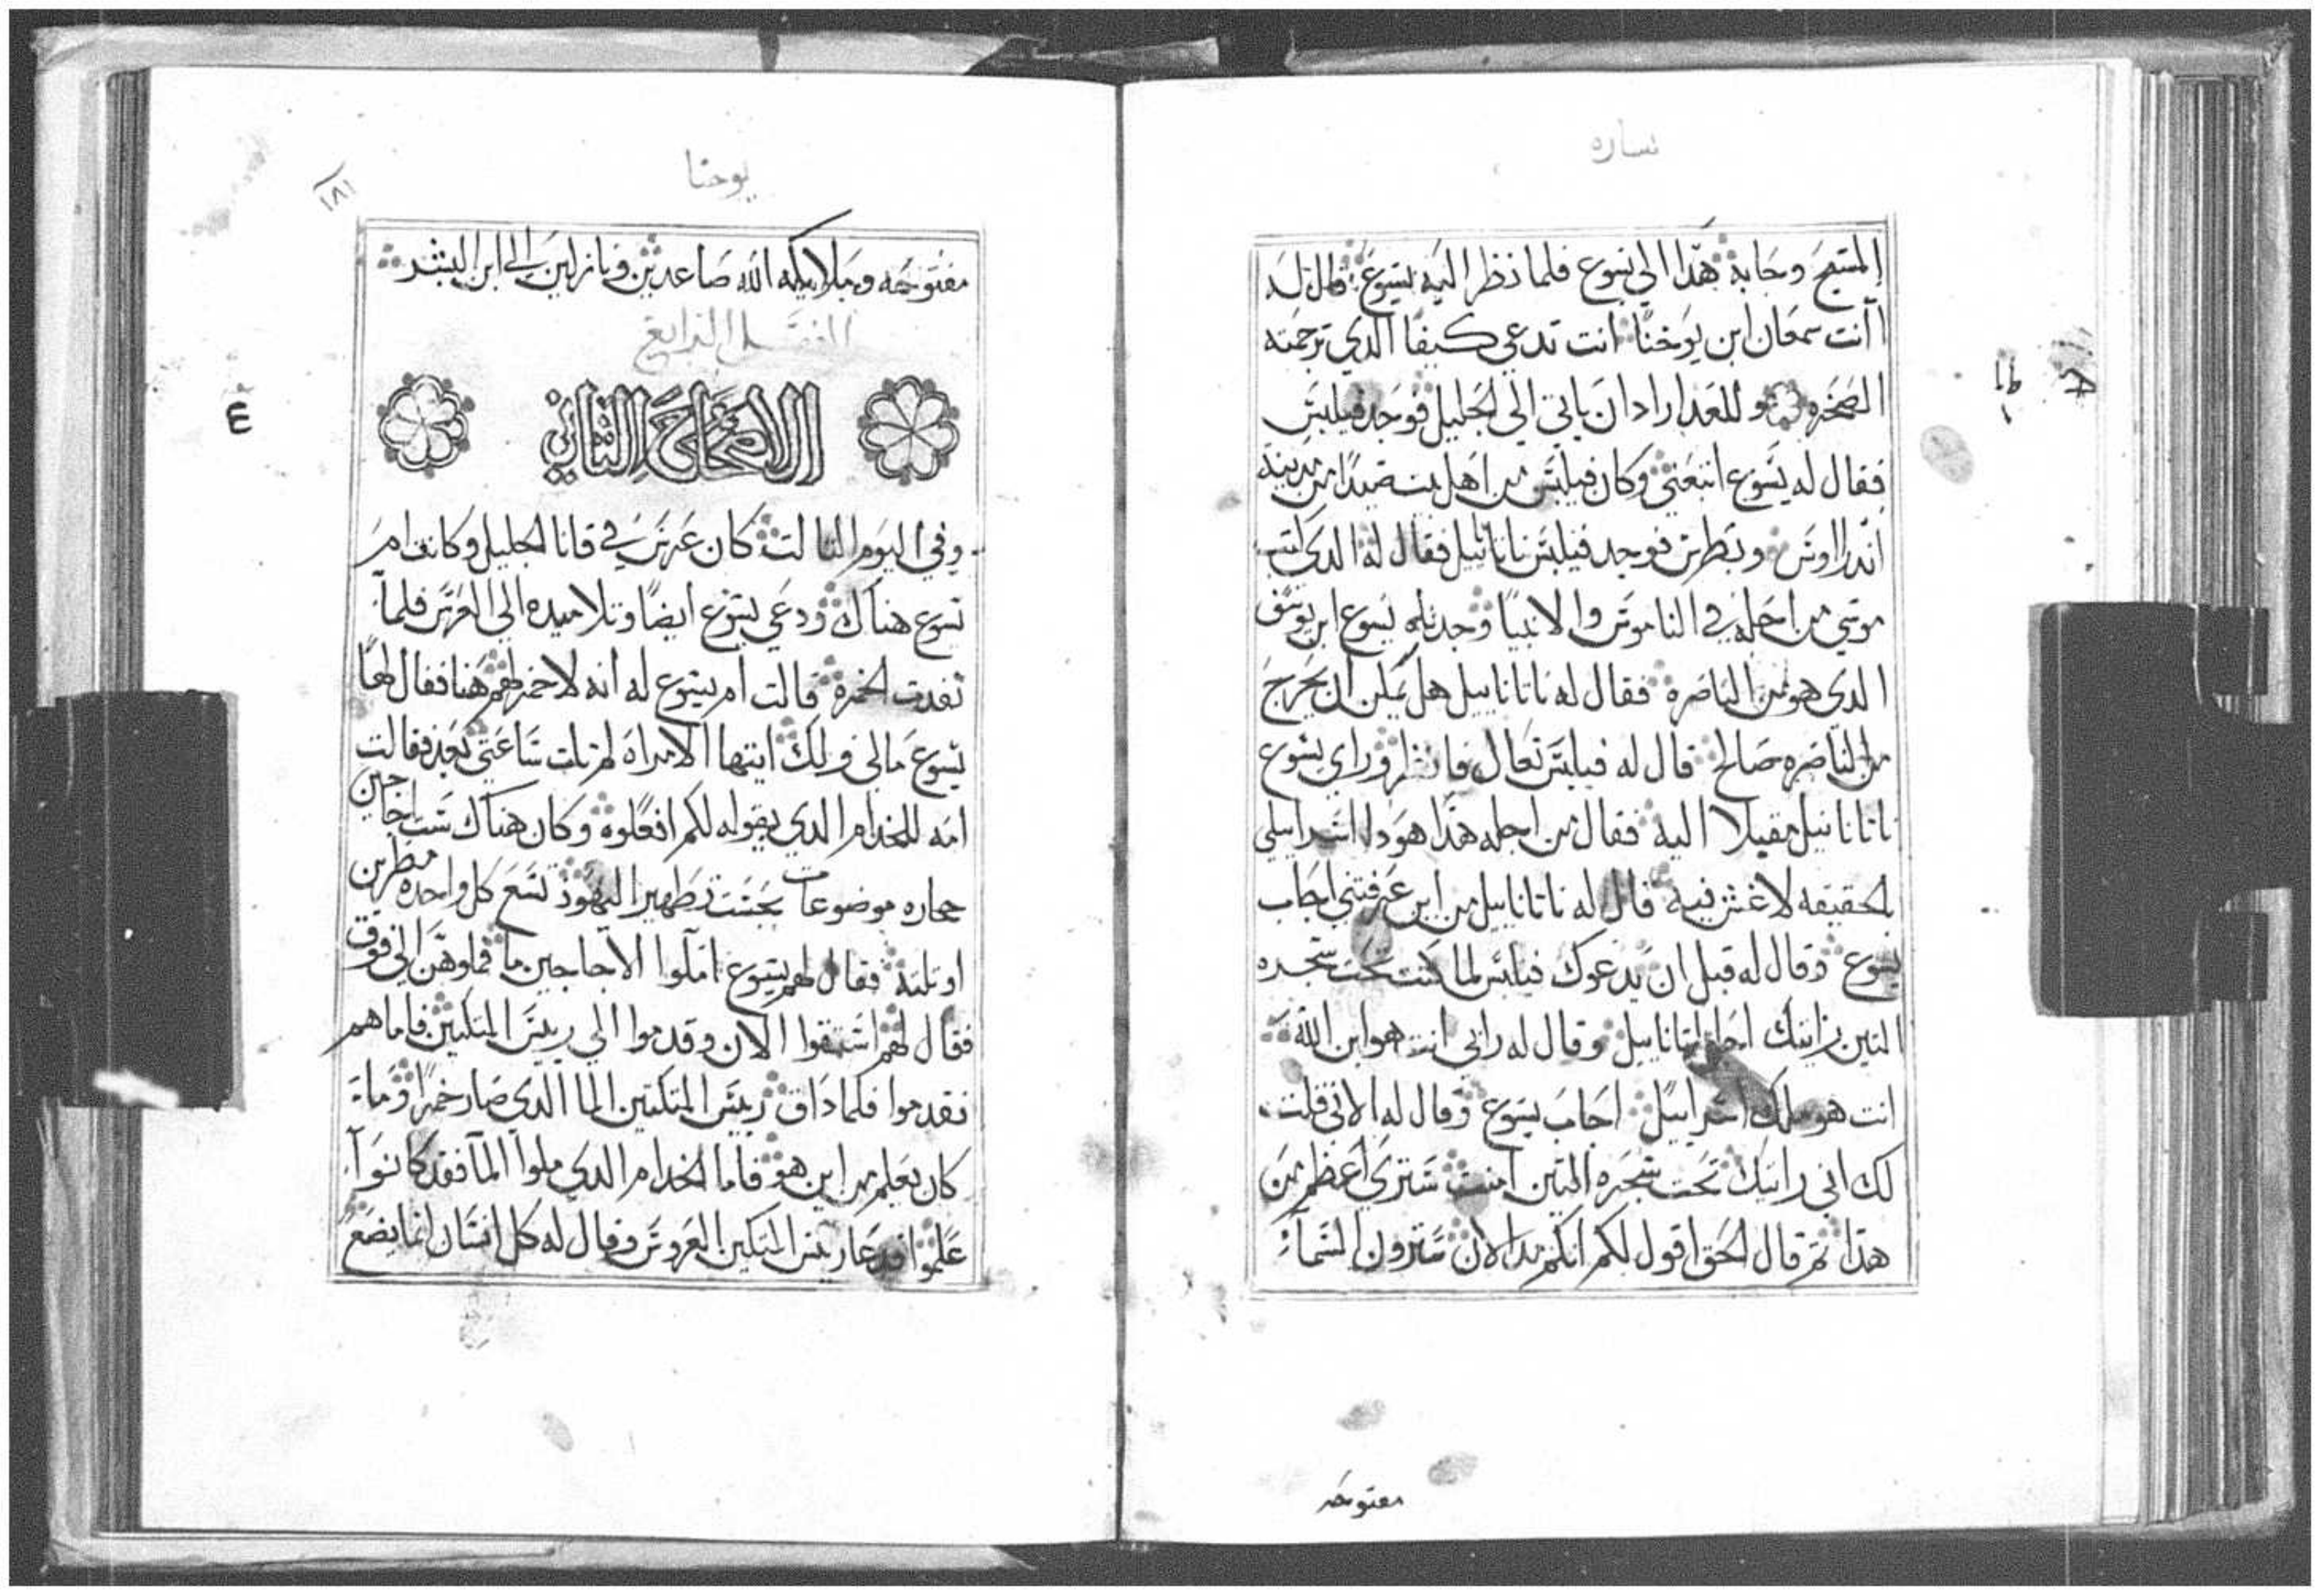 بساره
المسيح وجابه هدا الي يسوع فلما نظر اليه يسوع قال له
اانت سمعان ابن يوحنا انت تدعي كيفا الدي ترجمته
الصخره وللغد اراد ان ياتي الي الجليل فوجد فيلبس
فقال له يسوع اتبعني وكان فيلبس من اهل بيت صيدا من مدينة
اندراوس وبطرس فوجد فيلبس ناتانائيل فقال له الدي كتب
موسي من اجله في الناموس والانبيا وجدناه يسوع ابن يوسف
الدي هو من الناصره فقال له ناتاناييل هل يمكن ان يخرج
من الناصره صالح قال له فيلبس تعال فانظر وراي يسوع
ناتاناييل مقبلا اليه فقال من اجله هدا هودا اسراييلي
بالحقيقه لاغش فيه قال له ناتاناييل من اين عرفتني اجاب
يسوع وقال له قبل ان يدعوك فيلبس لما كنت تحت شجره
التين رايتك اجاب ناتاناييل وقال له رابي انت هو ابن الله
انت هو ملك اسراييل اجاب يسوع وقال له الاني قلت
لك اني رايتك تحت شجره التين امنت ستري اعظم من
هدا ثم قال الحق اقول لكم انكم من الان سترون السمآء
مفتوحه
يوحنا
١٨١
مفتوحه وملايكه الله صاعدين ونازلين الي ابن البشر
الفصل الرابع
الاصحاح الثاني
وفي اليوم التالت كان عرس في قانا الجليل وكانت ام
يسوع هناك ودعي يسوع ايضا وتلاميده الي العرس فلما
نفدت الخمره قالت ام يسوع له انه لا خمر لهم هنا فقال لها
يسوع مالي ولك ايتها الامراه لم تات ساعتي بعد فقالت
امه للخدام الدي يقوله لكم افعلوه وكان هناك ست اجاجين
حجاره موضوعات بحسب تطهير اليهود تسع كل واحده مطرين
او تلته فقال لهم يسوع املوا الاجاجين ما فملوهن الي فوق
فقال لهم استقوا الان وقدموا الي رييس المتكيين فاما هم
فقدموا فلما داق رييس المتكيين الما الدي صار خمرا وما
كان يعلم من اين هو فاما الخدام الدي ملوا الما فقد كانوا
علموا فدعا رييس المتكيين العروس وقال له كل انسان انما يضع